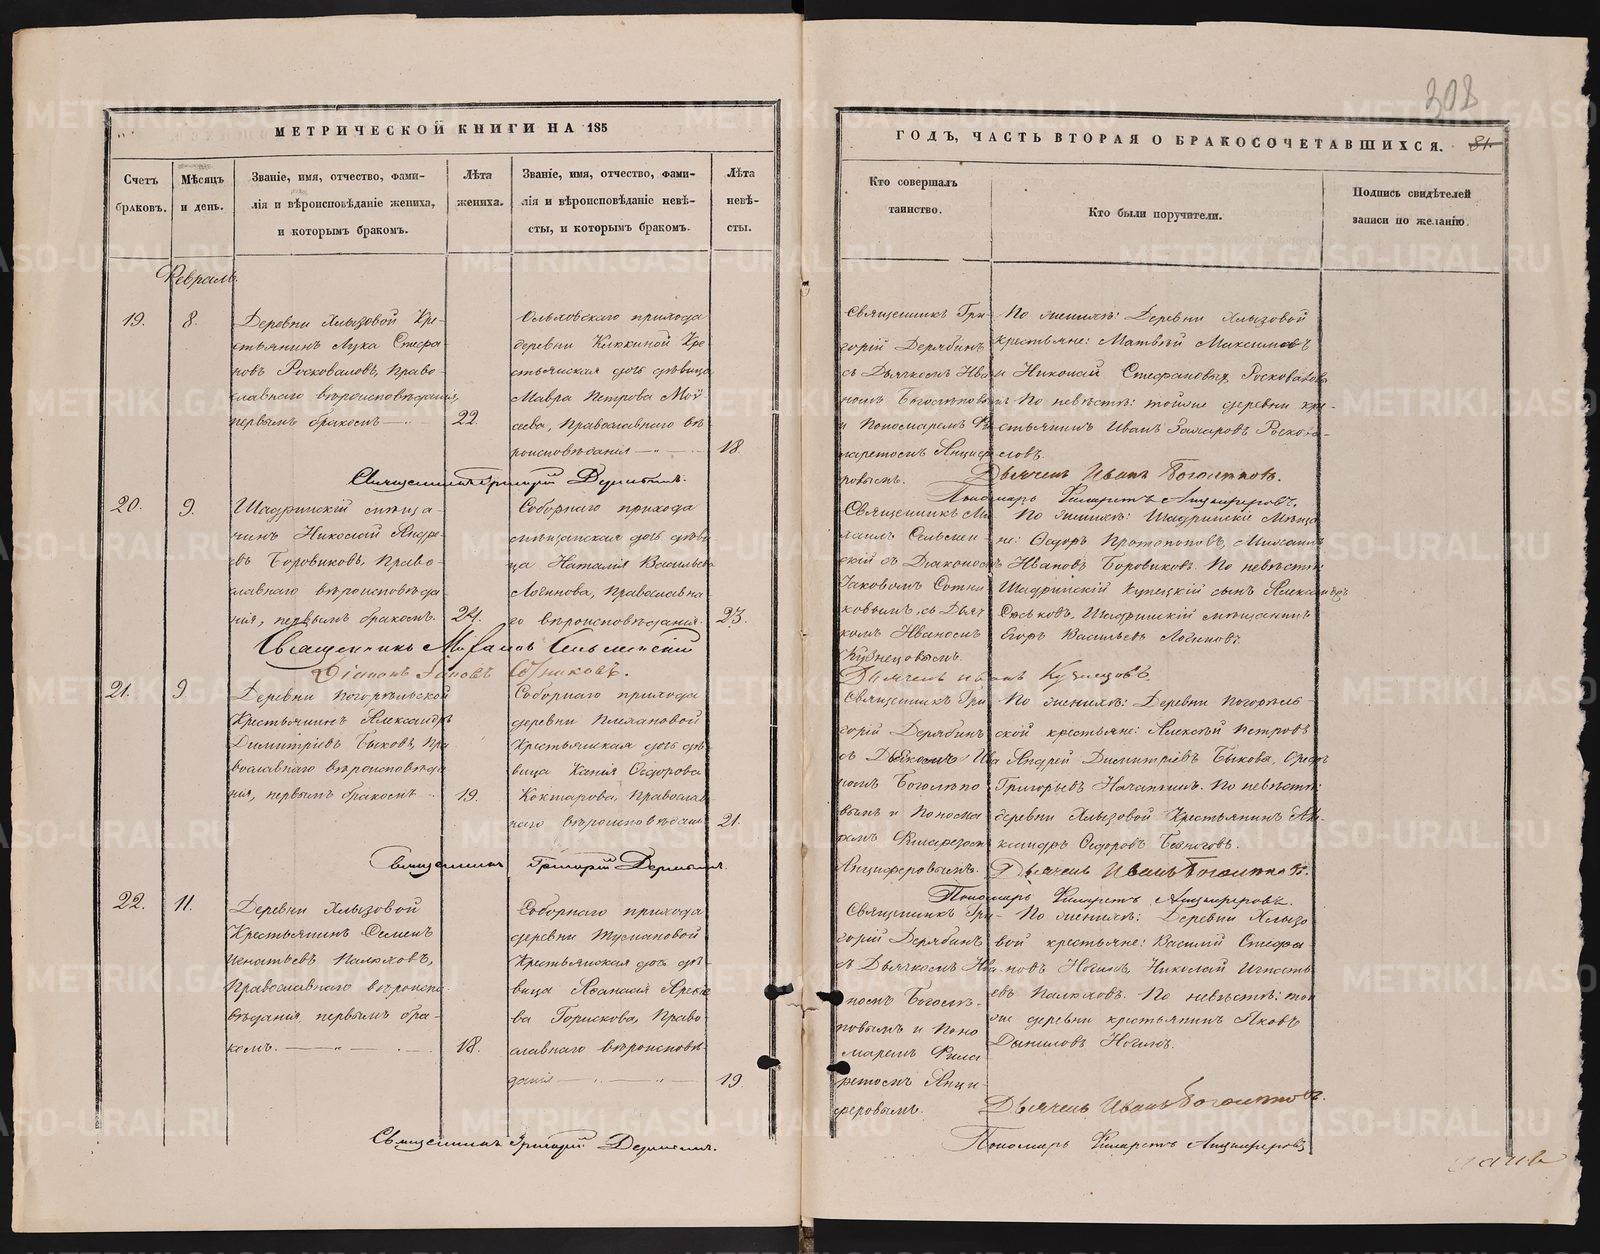 308
МЕТРИЧЕСКОЙ КНИГИ НА 185
ГОДЪ, ЧАСТЬ ВТОРАЯ О БРАКОСОЧЕТАВШИХСЯ. 81.
Счетъ браковъ.
Мѣсяцъ и день.
Званіе, имя, отчество, фами-
лія и вѣроисповѣданіе жениха,
и которымъ бракомъ.
Лѣта
жениха.
Званіе, имя, отчество, фами-
лія и вѣроисповѣданіе невѣ-
сты, и которымъ бракомъ.
Лѣта
невѣ-
сты.
Кто совершалъ
таинство.
Кто были поручители.
Подпись свидѣтелей
записи по желанію.
Февраль.
19.
8.
Деревни Хлызовой Кре-
стьянинъ Лука Стефа-
новъ Росковаловъ, Право-
славнаго вѣроисповѣданія,
первымъ бракомъ
22.
Ольховскаго прихода
деревни Клюкиной Кре
стьянская дочь дѣвица
Мавра Петрова
Православнаго вѣ
роисповѣданія
18.
Священникъ Гри-
горій Дерябинъ
съ Дьячкомъ Ива
номъ Боголѣповымъ
и Пономаремъ Фи
ларетомъ Анциф
ровымъ.
По женихѣ: Деревни Хлызовой
крестьяне: Матвѣй Максимовъ
и Николай Стефановъ, Росковаловы
По невѣстѣ: тойже деревни кре-
стьянинъ Иванъ Захаровъ Роскова-
ловъ.
Дьячекъ Иванъ Боголѣповъ.
Пономарь Филаретъ Анциферовъ.
Священникъ Григорій Дерябинъ.
20.
9.
Шадринскій мѣща-
нинъ Николай Андре-
евъ Боровиковъ, Право-
славнаго вѣроисповѣда-
нія, первымъ бракомъ.
24.
Соборнаго прихода
мѣщанская дочь дѣви-
ца Наталія Васильева
Логинова, Православна
го вѣроисповѣданія.
23.
Священникъ Ми-
хаилъ Сельмен-
скій съ Діакономъ
Іаковомъ Сотни
ковымъ, съ Дьяч
комъ Иваномъ
Кузнецовымъ.
По женихѣ: Шадринскіе Мѣща
не: Ѳедоръ Протопоповъ, Михаилъ
Ивановъ Боровиковъ. По невѣстѣ:
Шадринскій Купецкій сынъ Александръ
Сяськовъ, Шадринскій мѣщанинъ
Егоръ Васильевъ Логиновъ.
Дьячекъ Иванъ Кузнецовъ.
Священникъ Михаилъ Сельменскій
Діаконъ Іаковъ Сотниковъ.
21.
9.
Деревни Погорѣльской
Крестьянинъ Александръ
Димитріевъ Быковъ, Пра
вославнаго вѣроисповѣда
нія, первымъ бракомъ
19.
Соборнаго прихода
деревни
Крестьянская дочь дѣ
вица Ѳедорова
Кокшарова, Православ
наго вѣроисповѣдан
21.
Священникъ Гри
горій Дерябинъ
съ Дьячкомъ Ива
номъ Боголѣпо
вымъ и Понома
ремъ Филаретомъ
Анциферовымъ.
По женихѣ: Деревни Погорѣль
ской крестьяне: Алексѣй Петровъ
Андрей Димитріевъ Быкова,
Григорьевъ По невѣстѣ:
деревни Хлызовой Крестьянинъ Але
ксандръ Ѳедоровъ Безноговъ.
Дьячекъ Иванъ Боголѣповъ.
Пономарь Филаретъ Анциферовъ.
Священникъ Григорій Дерябинъ.
22.
11.
Деревни Хлызовой
Крестьянинъ Семенъ
Игнатьевъ Палюховъ,
Православнаго вѣроиспо-
вѣданія, первымъ бра-
комъ.
18.
Соборнаго прихода
деревни Тумановой
Крестьянская дочь дѣ-
вица Аѳанасія
Горискова, Право-
славнаго вѣроисповѣ-
данія
19.
Священникъ Гри-
горій Дерябинъ
съ Дьячкомъ Ива-
номъ Боголѣ-
повымъ и Поно
маремъ Фила
ретомъ Анци-
феровымъ.
По женихѣ: Деревни Хлызо
вой крестьяне: Василій Стефа
новъ Ногинъ, Николай Игнать
евъ Палюховъ. По невѣстѣ: той
же деревни крестьянинъ Яковъ
Даниловъ Ногинъ.
Дьячекъ Иванъ Боголѣповъ.
Пономарь Филаретъ Анциферовъ
Священникъ Григорій Дерябинъ.